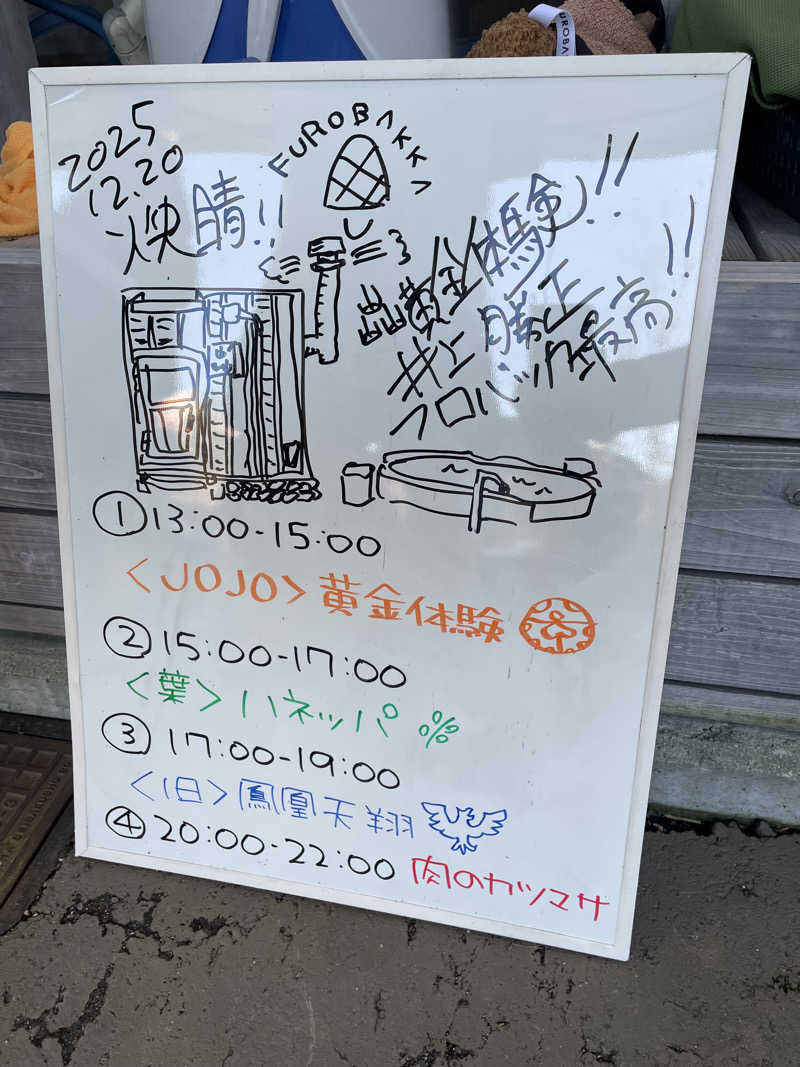 2025
12.20
快晴!!
FUROBAKKA
黄金体験!!
井上勝正
フロバッカ最高!!
①13:00-15:00
<JOJO>黄金体験
②15:00-17:00
<葉>ハネッパ
③17:00-19:00
<旧>鳳凰天翔
④20:00-22:00 肉のカツマサ